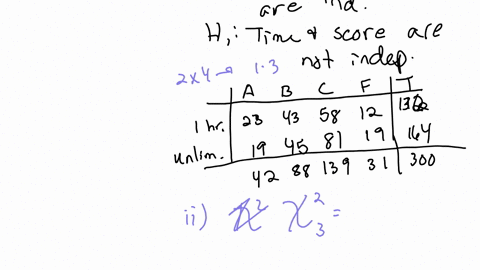 are ind.
H₁: Time & score are
not indep.
2x4 → 1·3
A B C F T
1 hr. 23 43 58 12
unlim. 19 45 81 19 164
42 88 139 31 300
ii) χ²₃ =